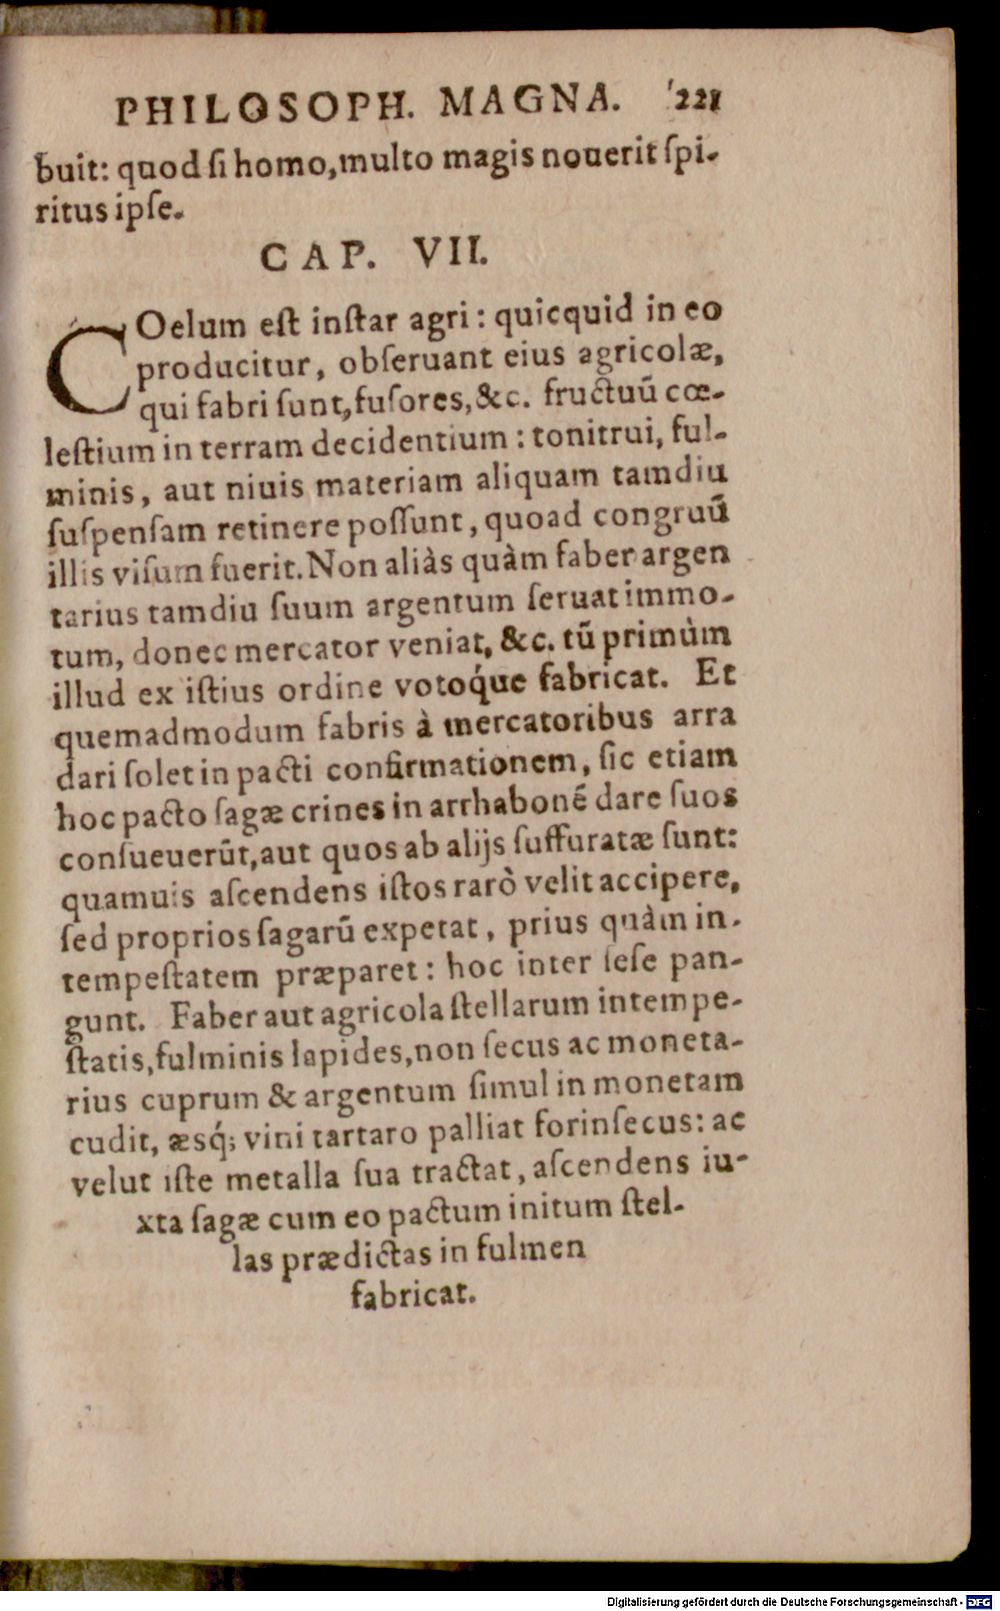 PHILOSOPH. MAGNA. 221
buit: quod ſi homo, multo magis nouerit ſpi-
ritus ipſe.
CAP. VII.
COelum eſt inſtar agri: quicquid in eo
producitur, obſeruant eius agricolæ,
qui fabri ſunt, fuſores, &c. fructuū cœ-
leſtium in terram decidentium: tonitrui, ful-
minis, aut niuis materiam aliquam tamdiu
ſuſpenſam retinere poſſunt, quoad congruū
illis viſum fuerit. Non aliàs quàm faber argen
tarius tamdiu ſuum argentum ſeruat immo-
tum, donec mercator veniat, &c. tū primùm
illud ex iſtius ordine votoq́ue fabricat. Et
quemadmodum fabris à mercatoribus arra
dari ſolet in pacti confirmationem, ſic etiam
hoc pacto ſagæ crines in arrhabonē dare ſuos
conſueuerūt, aut quos ab alijs ſuffuratæ ſunt:
quamuis aſcendens iſtos rarò velit accipere,
ſed proprios ſagarū expetat, prius quàm in-
tempeſtatem præparet: hoc inter ſeſe pan-
gunt. Faber aut agricola ſtellarum intempe-
ſtatis, fulminis lapides, non ſecus ac moneta-
rius cuprum & argentum ſimul in monetam
cudit, æsq́; vini tartaro palliat forinſecus: ac
velut iſte metalla ſua tractat, aſcendens iu-
xta ſagæ cum eo pactum initum ſtel-
las prædictas in fulmen
fabricat.
Digitalisierung gefördert durch die Deutsche Forschungsgemeinschaft - DFG